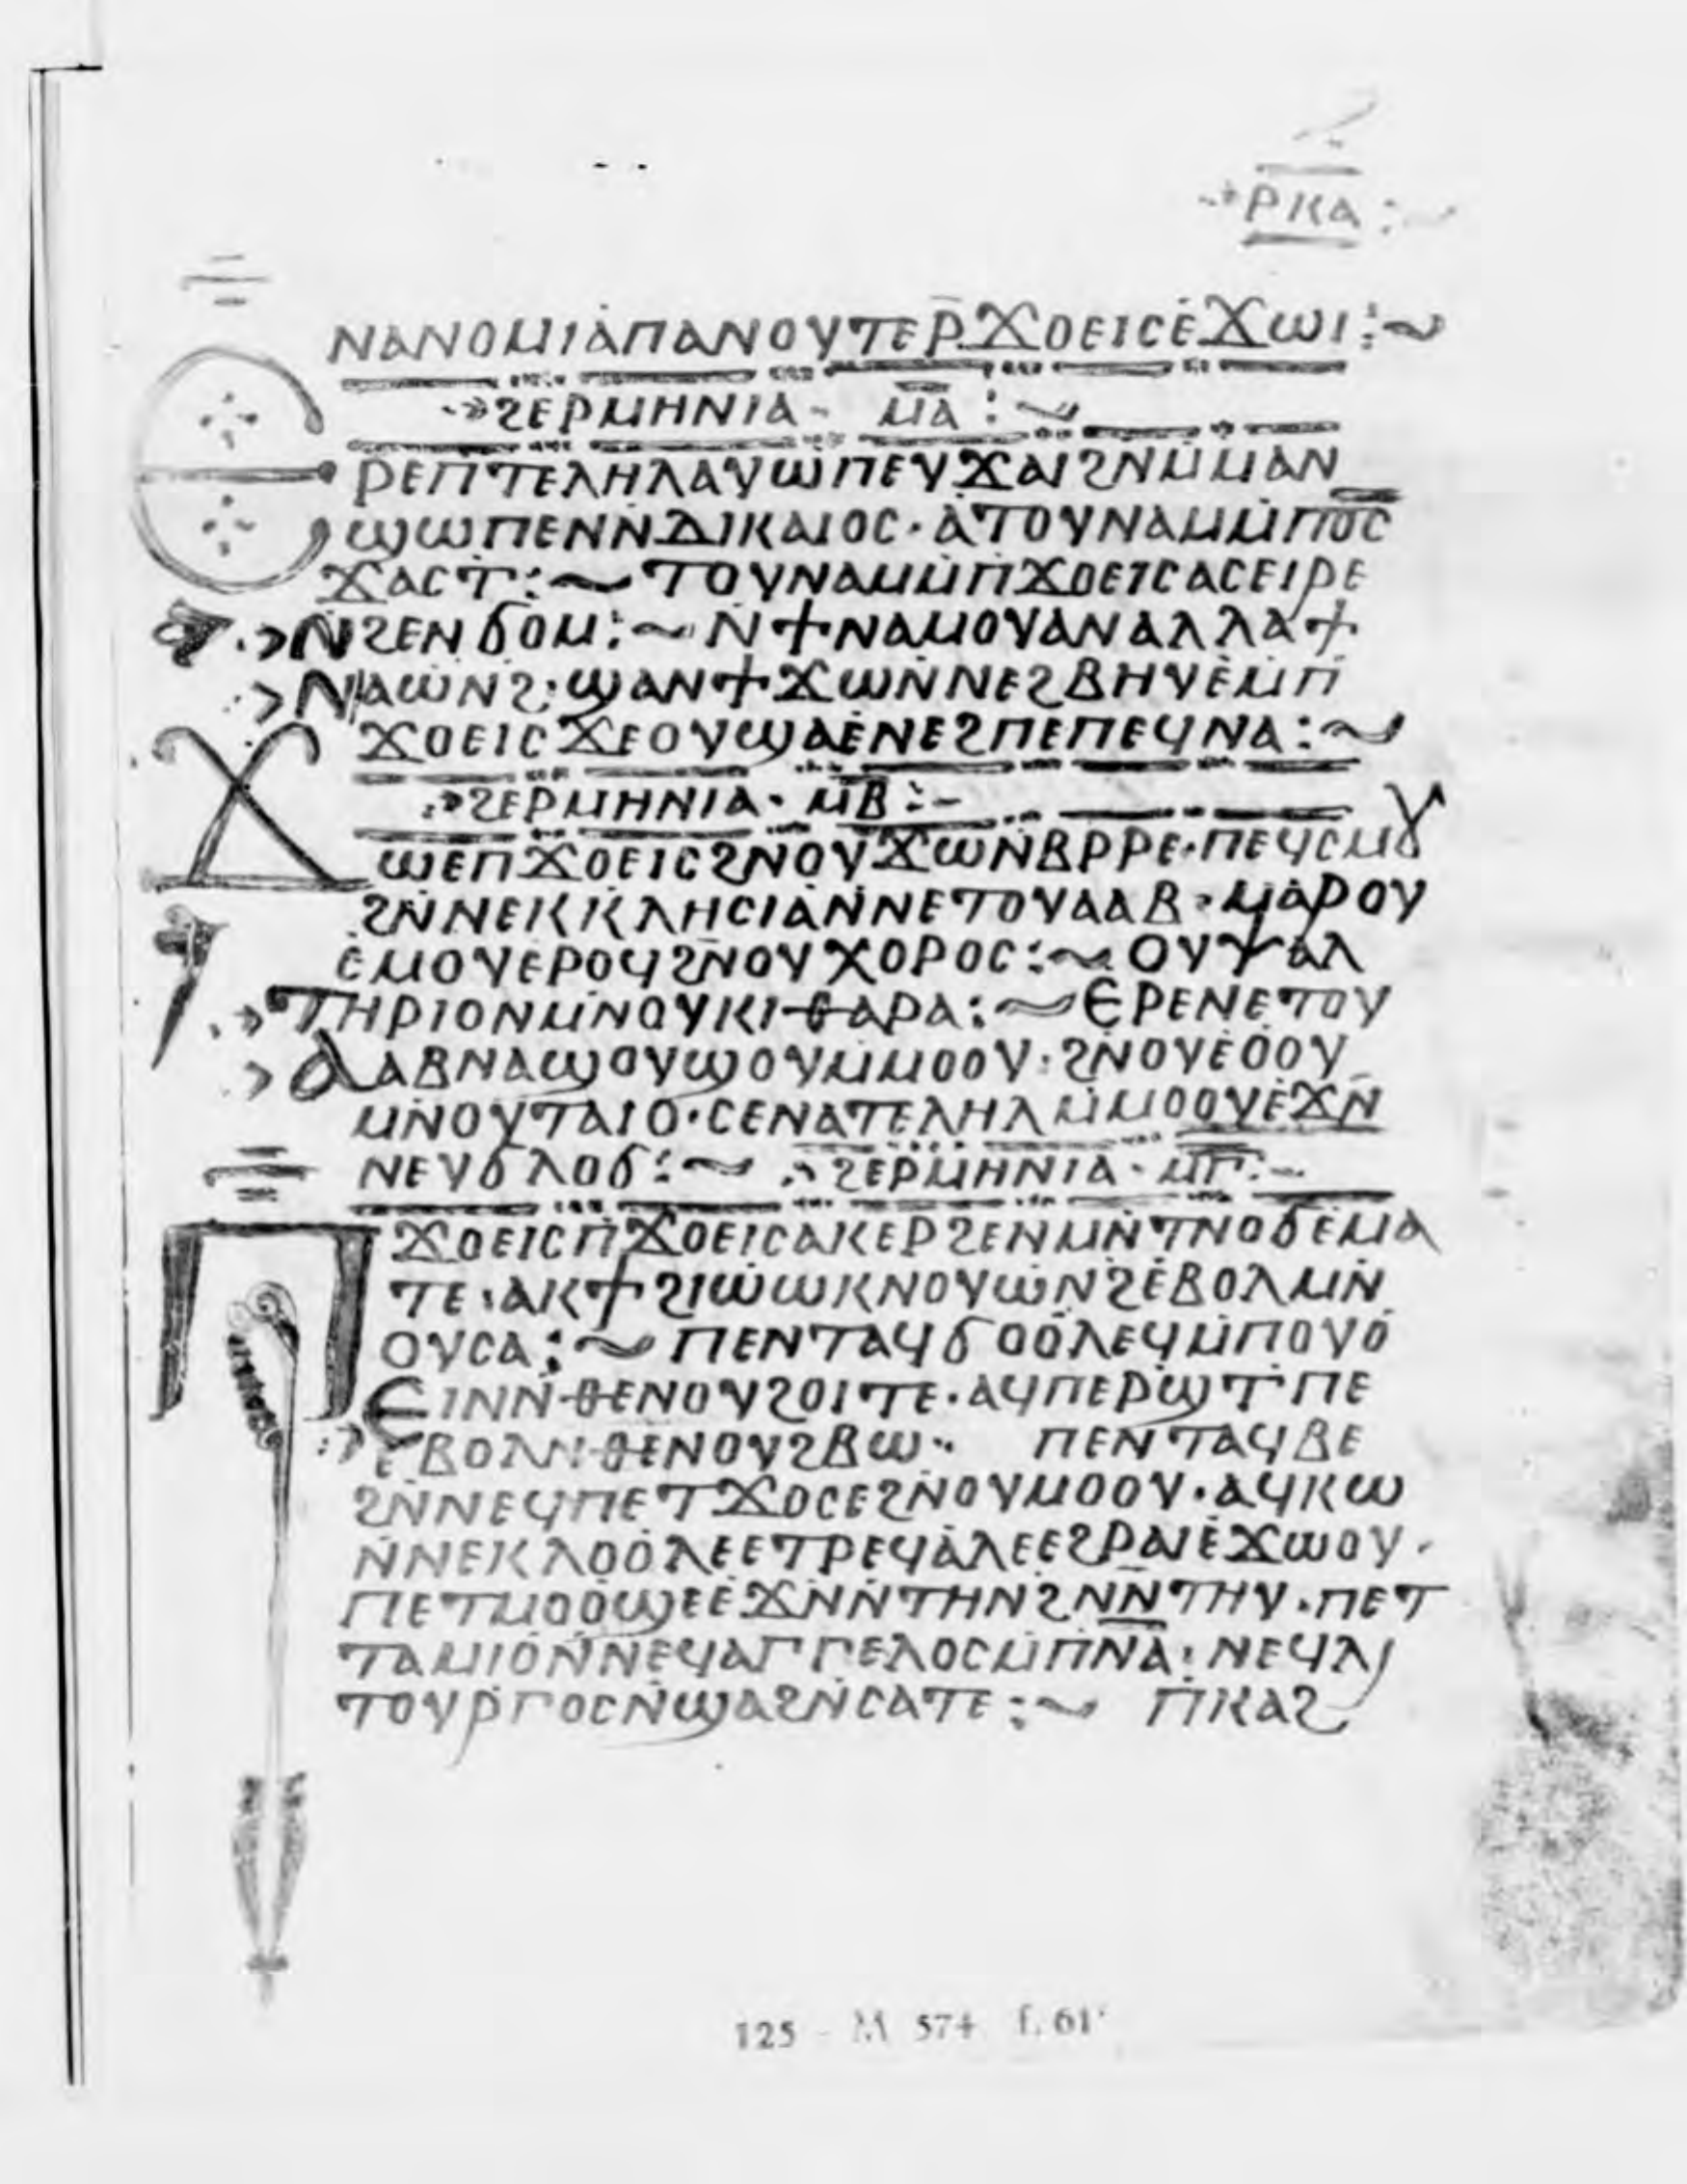 ⲣⲕⲁ:
ⲛⲁⲛⲟⲙⲓⲁⲡⲁⲛⲟⲩⲧⲉⲣ̄ϫⲟⲉⲓⲥⲉϫⲱⲓ:~
ϩⲉⲣⲙⲏⲛⲓⲁ · ⲙ̄ⲁ̄:~
ⲉⲣⲉⲡⲧⲉⲗⲏⲗⲁⲩⲱⲡⲉⲩϫⲁⲓϩⲛⲙ̇ⲙⲁⲛ
ϣⲱⲡⲉⲛⲛ̇ⲇⲓⲕⲁⲓⲟⲥ·ⲁ̇ⲧⲟⲩⲛⲁⲙⲙ̇ⲡⲟ̄ⲥ̄
ϫⲁⲥⲧ̇:~ ⲧⲟⲩⲛⲁⲙⲙ̇ⲡϫⲟⲉⲓⲥⲁⲥⲉⲓⲣⲉ
ⲛ̇ϩⲉⲛϭⲟⲙ:~ ⲛ̇ϯⲛⲁⲙⲟⲩⲁⲛⲁⲗⲗⲁϯ
ⲛⲁⲱⲛϩ·ϣⲁⲛϯϫⲱⲛ̇ⲛⲉϩⲃⲏⲩⲉ̇ⲙ̇ⲡ̇
ϫⲟⲉⲓⲥϫⲉⲟⲩϣⲁⲉ̇ⲛⲉϩⲡⲉⲡⲉϥⲛⲁ:~
ϩⲉⲣⲙⲏⲛⲓⲁ · ⲙ̄ⲃ̄:-
ϫⲱⲉⲡϫⲟⲉⲓⲥϩⲛⲟⲩϫⲱⲛ̇ⲃⲣⲣⲉ·ⲡⲉϥⲥⲙⲟⲩ
ϩⲛ̇ⲛⲉⲕⲕⲗⲏⲥⲓⲁⲛ̇ⲛⲉⲧⲟⲩⲁⲁⲃ·ⲙⲁⲣⲟⲩ
ⲥⲙⲟⲩⲉⲣⲟϥϩⲛ̄ⲟⲩⲭⲟⲣⲟⲥ:~ ⲟⲩⲯⲁⲗ
ⲧⲏⲣⲓⲟⲛⲙ̇ⲛⲟⲩⲕⲓⲑⲁⲣⲁ:~ ⲉⲣⲉⲛⲉⲧⲟⲩ
ⲁⲁⲃⲛⲁϣⲟⲩϣⲟⲩⲙ̇ⲙⲟⲟⲩ·ϩⲛⲟⲩⲉ̇ⲟⲟⲩ
ⲙⲛ̇ⲟⲩⲧⲁⲓⲟ·ⲥⲉⲛⲁⲧⲉⲗⲏⲗⲙ̇ⲙⲟⲟⲩⲉ̇ϫⲛ̇
ⲛⲉⲩϭⲗⲟϭ:~ ϩⲉⲣⲙⲏⲛⲓⲁ · ⲙ̄ⲅ̄:-
ⲡϫⲟⲉⲓⲥⲡ̇ϫⲟⲉⲓⲥⲁⲕⲉⲣϩⲉⲛⲙⲛ̇ⲧⲛⲟϭⲉ̇ⲙⲁ
ⲧⲉ·ⲁⲕϯϩⲓⲱ̇ⲱⲕⲛⲟⲩⲱ̇ⲛϩⲉ̇ⲃⲟⲗⲙⲛ̇
ⲟⲩⲥⲁ:~ ⲡⲉⲛⲧⲁϥϭⲟⲟ̇ⲗⲉϥⲙ̇ⲡⲟⲩⲟ̇
ⲉⲓⲛⲛ̇ⲑⲉⲛⲟⲩϩⲟⲓⲧⲉ·ⲁϥⲡⲉⲣϣⲧ̇ⲡⲉ
ⲉ̇ⲃⲟⲗⲛ̇ⲑⲉⲛⲟⲩϩⲃⲱ·· ⲡⲉⲛⲧⲁϥⲃⲉ
ϩⲛ̇ⲛⲉϥⲡⲉⲧϫⲟⲥⲉϩⲛ̇ⲟⲩⲙⲟⲟⲩ·ⲁϥⲕⲱ
ⲛ̇ⲛⲉⲕⲗⲟⲟ̇ⲗⲉⲉⲧⲣⲉϥⲁ̇ⲗⲉⲉϩⲣⲁⲓⲉ̇ϫⲱⲟⲩ·
ⲡⲉⲧⲙⲟⲟ̇ϣⲉⲉ̇ϫⲛ̇ⲛ̇ⲧⲏⲛϩⲛ̄ⲛ̄ⲧⲏⲩ·ⲡⲉⲧ
ⲧⲁⲙⲓⲟ̇ⲛ̇ⲛⲉϥⲁⲅⲅⲉⲗⲟⲥⲙ̇ⲡ̄ⲛ̄ⲁ̄:ⲛⲉϥⲗⲓ
ⲧⲟⲩⲣⲅⲟⲥⲛ̇ϣⲁϩⲛ̇ⲥⲁⲧⲉ:~ ⲡ̇ⲕⲁϩ
125 - M 574 f. 61ʳ